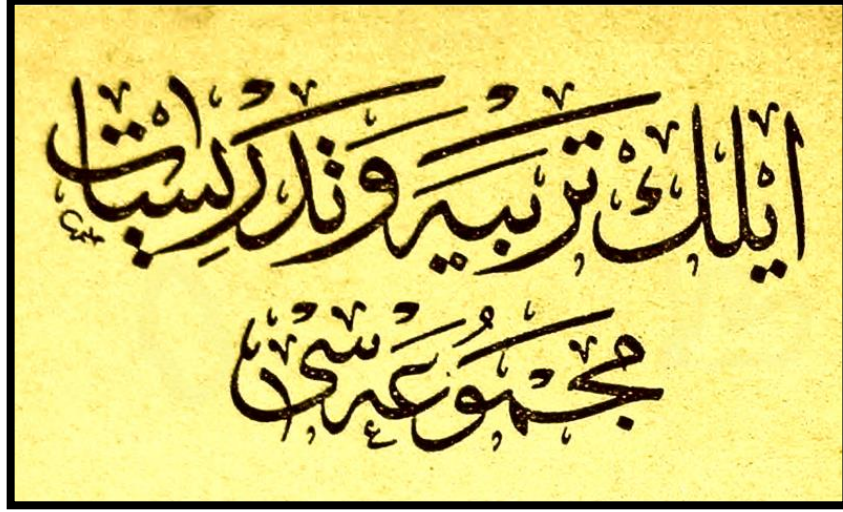 ايلك تربيه و تدريسات
مجموعه سى